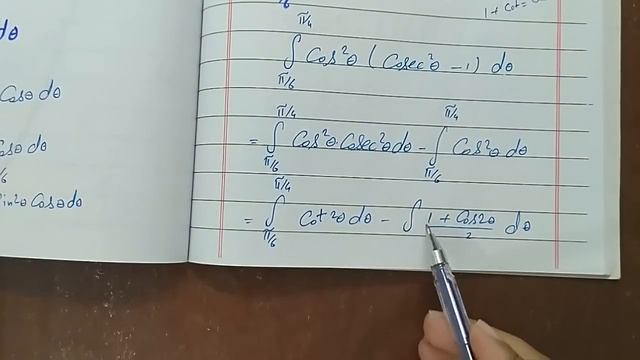 dθ
Cosθ dθ
Cosθ dθ
π/6
Sin²θ Cosθ dθ
π/6
1 + Cot²
∫_{π/6}^{π/4} Cos²θ (Cosec²θ - 1) dθ
= ∫_{π/6}^{π/4} Cos²θ Cosec²θ dθ - ∫_{π/6}^{π/4} Cos²θ dθ
= ∫_{π/6}^{π/4} Cot²θ dθ - ∫ (1 + Cos2θ)/2 dθ